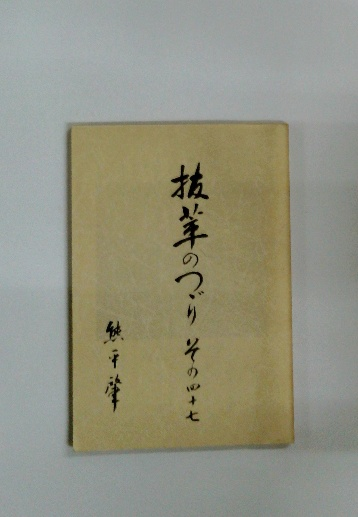 抜萃のつゞり その四十七
熊平肇